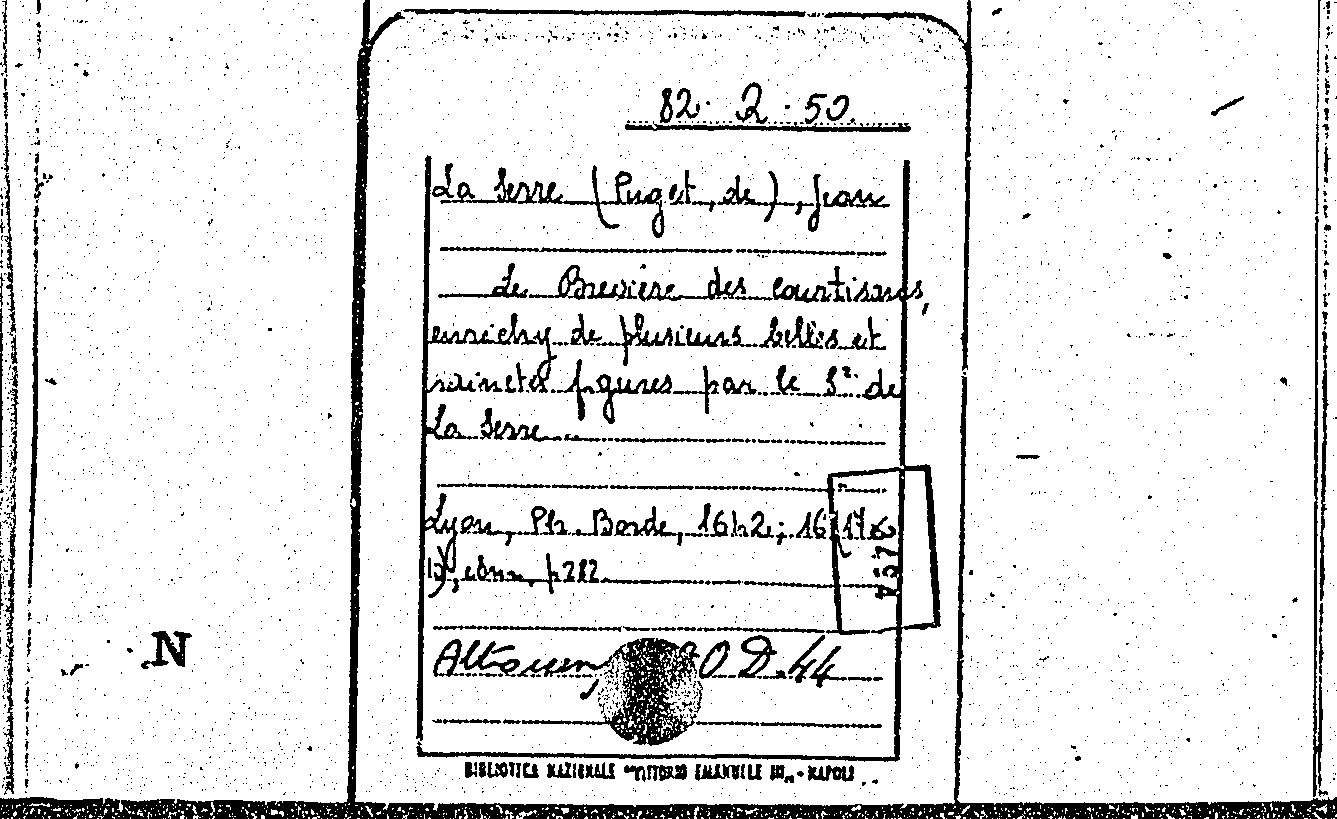 82. 2. 50.
La Serre (Puget, de), Jean
Le Brevière des courtisans,
enrichy de plusieurs belles et
sainctes figures par le Sr. de
La Serre...
Lyon, Ph. Borde, 1642; 16
p 282.
Altro D.44
N
BIBLIOTECA NAZIONALE "VITTORIO EMANUELE III" - NAPOLI